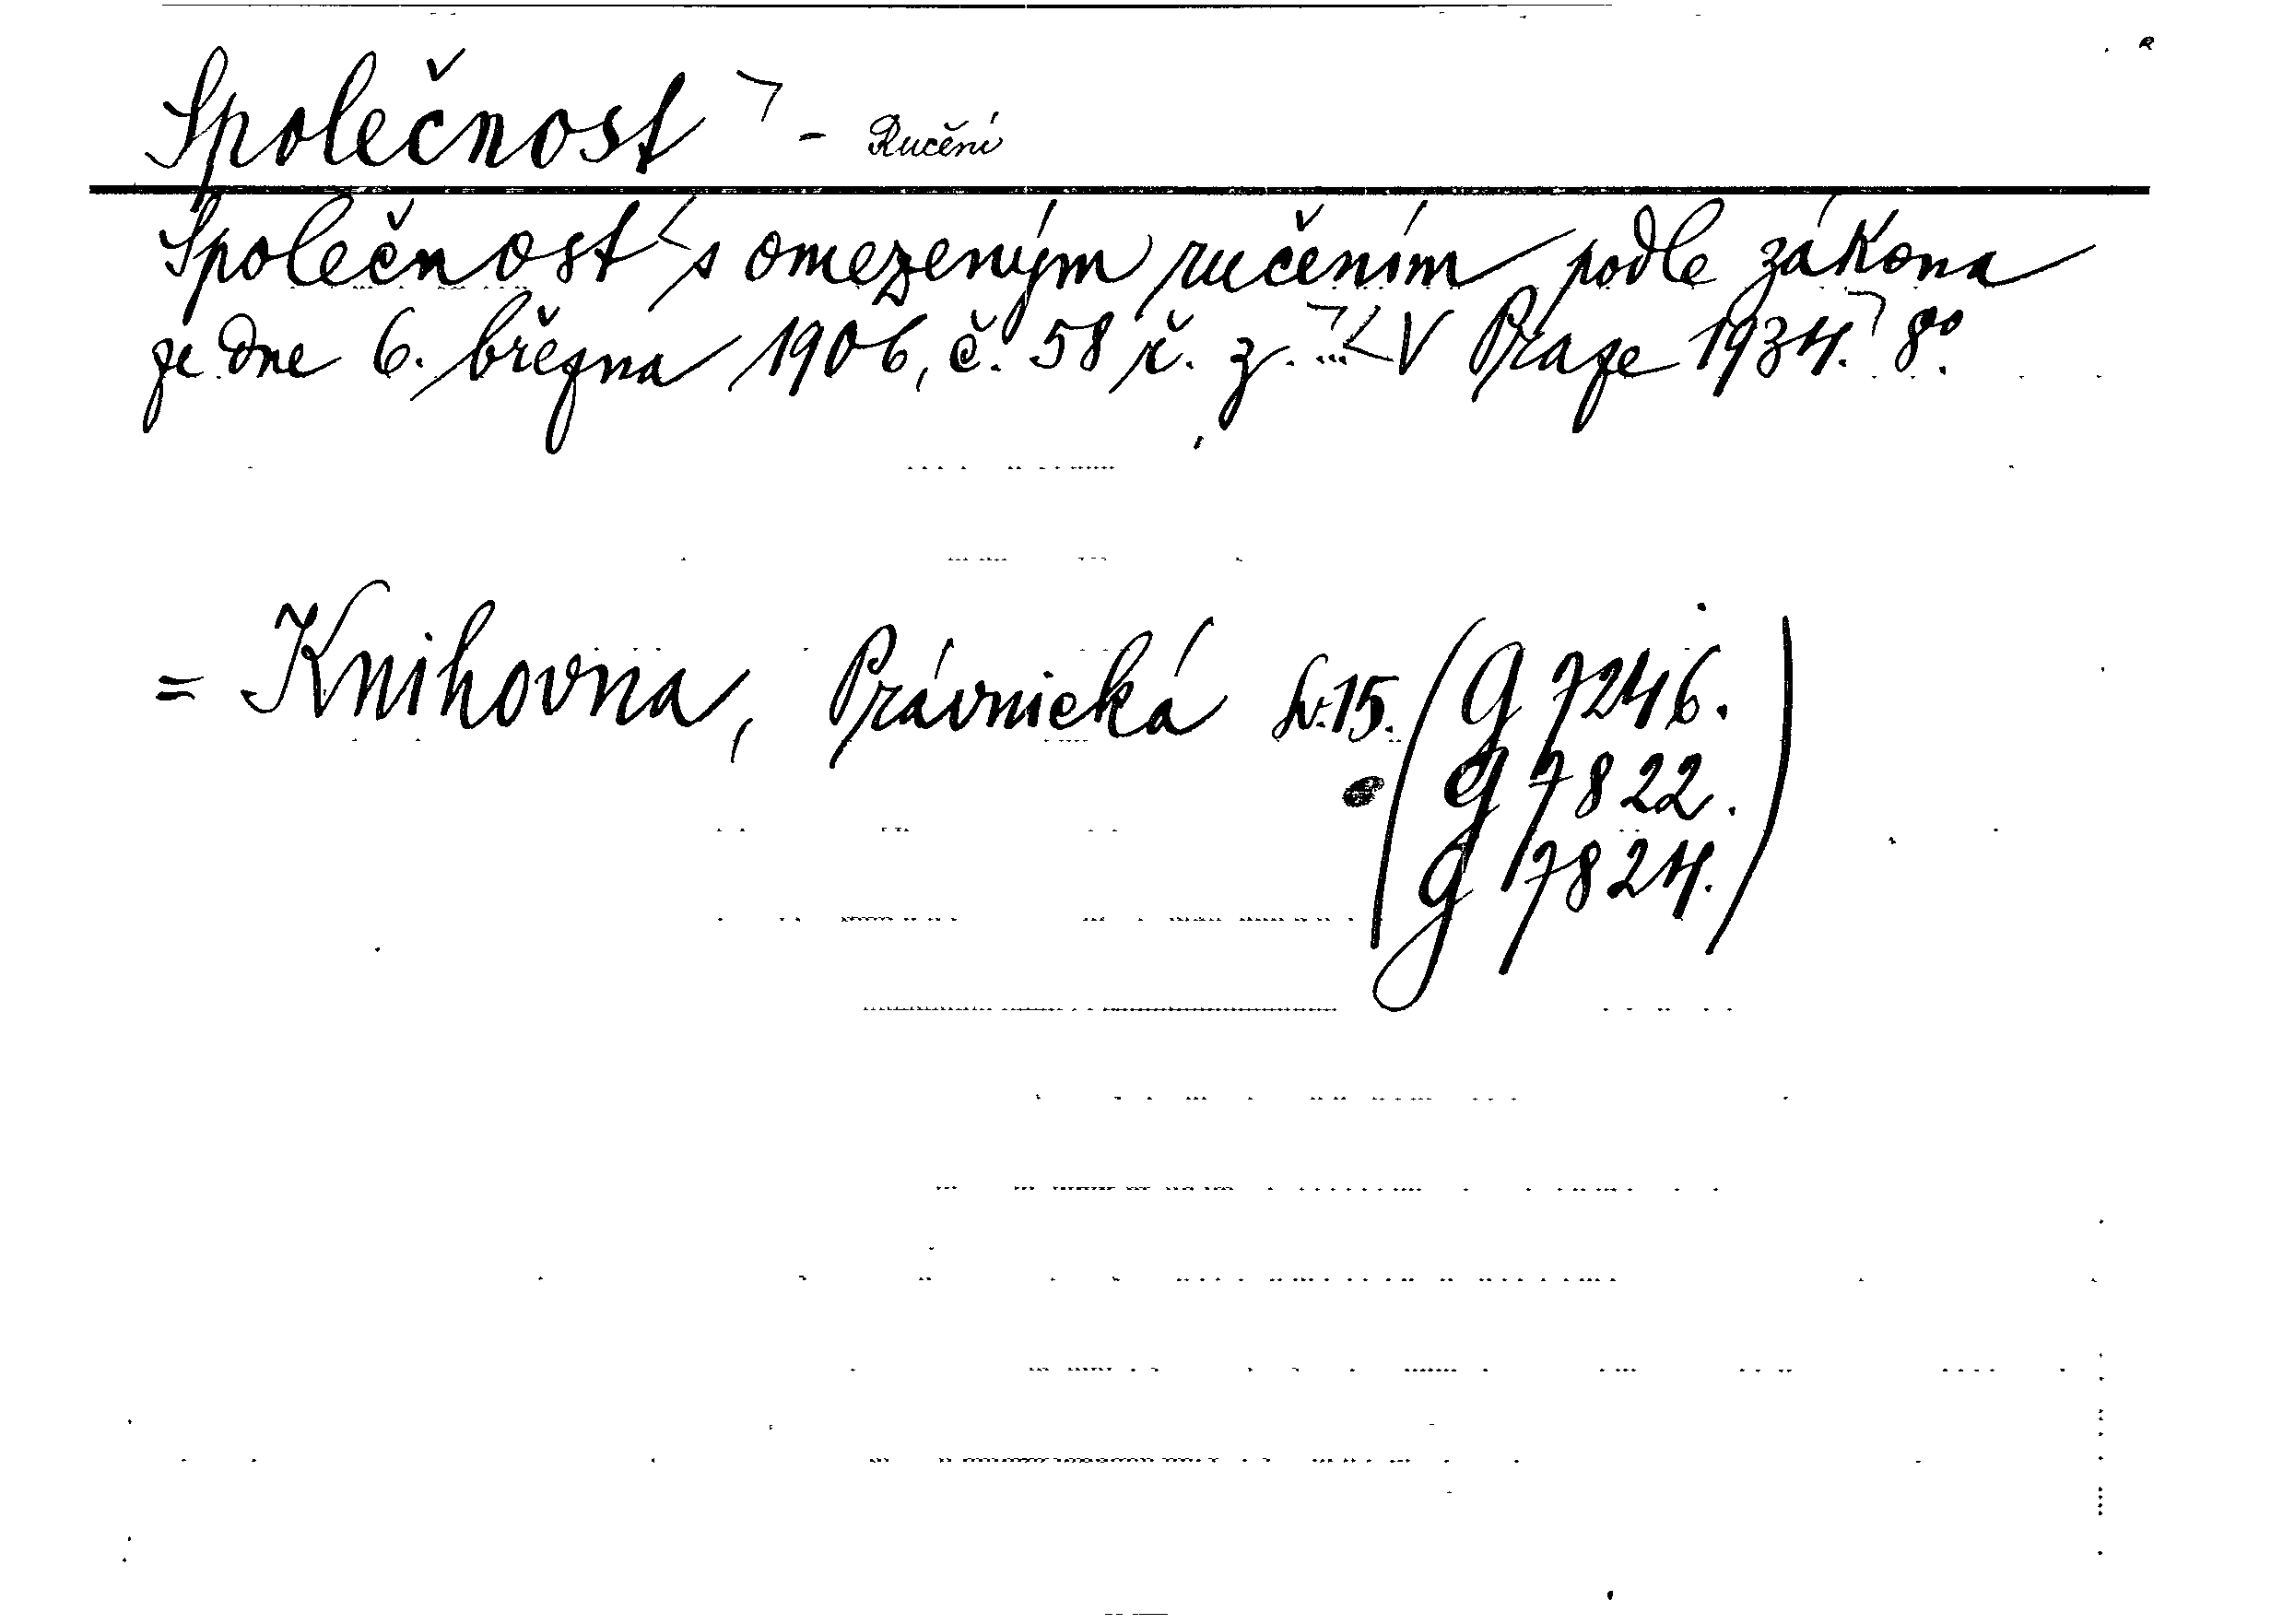 Společnost ¬ - Ručení
Společnost < s omezeným ručením podle zákona
ze dne 6. března 1906, č. 58 ř. z. ¬ ... < V Praze 1934. ¬ 8°.
= Knihovna, Právnická sv. 15. (g 7246.
g 7822.
g 7824.)